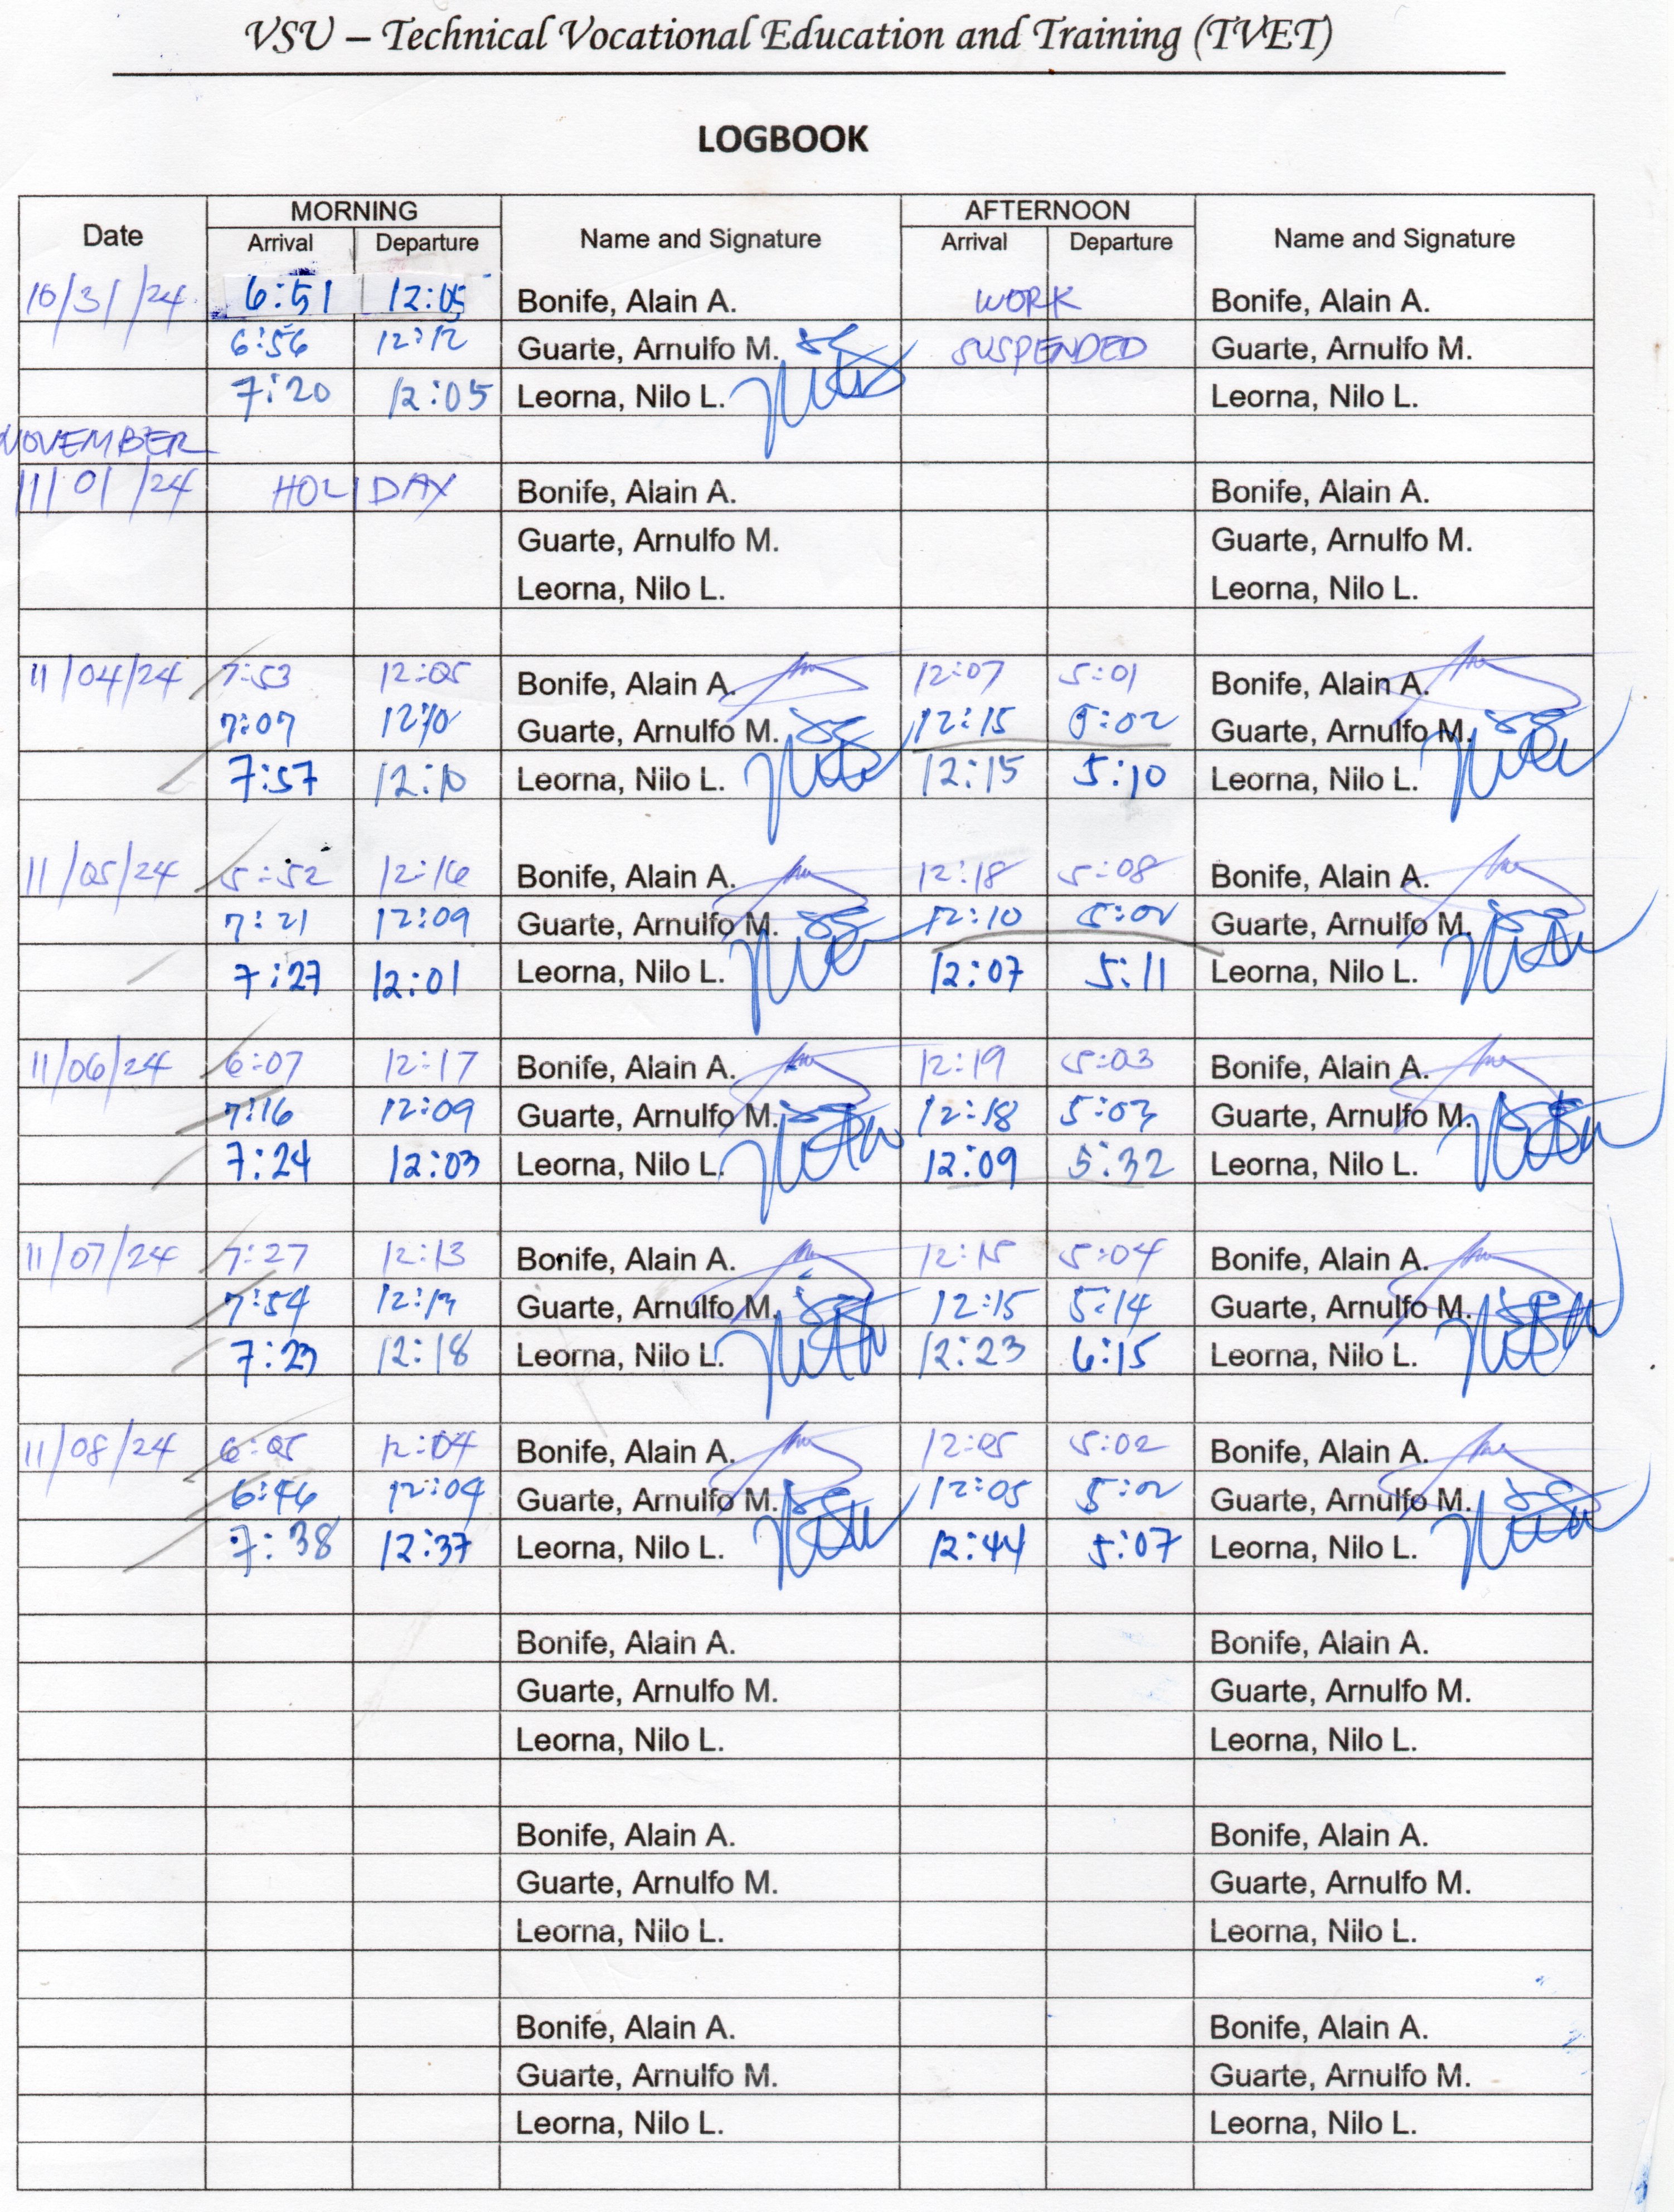 VSU – Technical Vocational Education and Training (TVET)
LOGBOOK
Date MORNING Name and Signature AFTERNOON Name and Signature
Arrival Departure Arrival Departure
10/31/24 6:51 12:05 Bonife, Alain A. WORK Bonife, Alain A.
6:56 12:12 Guarte, Arnulfo M. SUSPENDED Guarte, Arnulfo M.
7:20 12:05 Leorna, Nilo L. Leorna, Nilo L.
NOVEMBER
11/01/24 HOLIDAY Bonife, Alain A. Bonife, Alain A.
Guarte, Arnulfo M. Guarte, Arnulfo M.
Leorna, Nilo L. Leorna, Nilo L.
11/04/24 7:53 12:05 Bonife, Alain A. 12:07 5:01 Bonife, Alain A.
7:07 12:10 Guarte, Arnulfo M. 12:15 5:02 Guarte, Arnulfo M.
7:57 12:10 Leorna, Nilo L. 12:15 5:10 Leorna, Nilo L.
11/05/24 5:52 12:16 Bonife, Alain A. 12:18 5:08 Bonife, Alain A.
7:21 12:09 Guarte, Arnulfo M. 12:10 5:02 Guarte, Arnulfo M.
7:27 12:01 Leorna, Nilo L. 12:07 5:11 Leorna, Nilo L.
11/06/24 6:07 12:17 Bonife, Alain A. 12:19 5:03 Bonife, Alain A.
7:16 12:09 Guarte, Arnulfo M. 12:18 5:03 Guarte, Arnulfo M.
7:24 12:03 Leorna, Nilo L. 12:09 5:32 Leorna, Nilo L.
11/07/24 7:27 12:13 Bonife, Alain A. 12:15 5:04 Bonife, Alain A.
7:54 Guarte, Arnulfo M. 12:15 5:14 Guarte, Arnulfo M.
7:23 12:18 Leorna, Nilo L. 12:23 6:15 Leorna, Nilo L.
11/08/24 6:05 12:04 Bonife, Alain A. 12:05 5:02 Bonife, Alain A.
6:46 12:04 Guarte, Arnulfo M. 12:05 5:02 Guarte, Arnulfo M.
7:38 12:37 Leorna, Nilo L. 12:44 5:07 Leorna, Nilo L.
Bonife, Alain A. Bonife, Alain A.
Guarte, Arnulfo M. Guarte, Arnulfo M.
Leorna, Nilo L. Leorna, Nilo L.
Bonife, Alain A. Bonife, Alain A.
Guarte, Arnulfo M. Guarte, Arnulfo M.
Leorna, Nilo L. Leorna, Nilo L.
Bonife, Alain A. Bonife, Alain A.
Guarte, Arnulfo M. Guarte, Arnulfo M.
Leorna, Nilo L. Leorna, Nilo L.